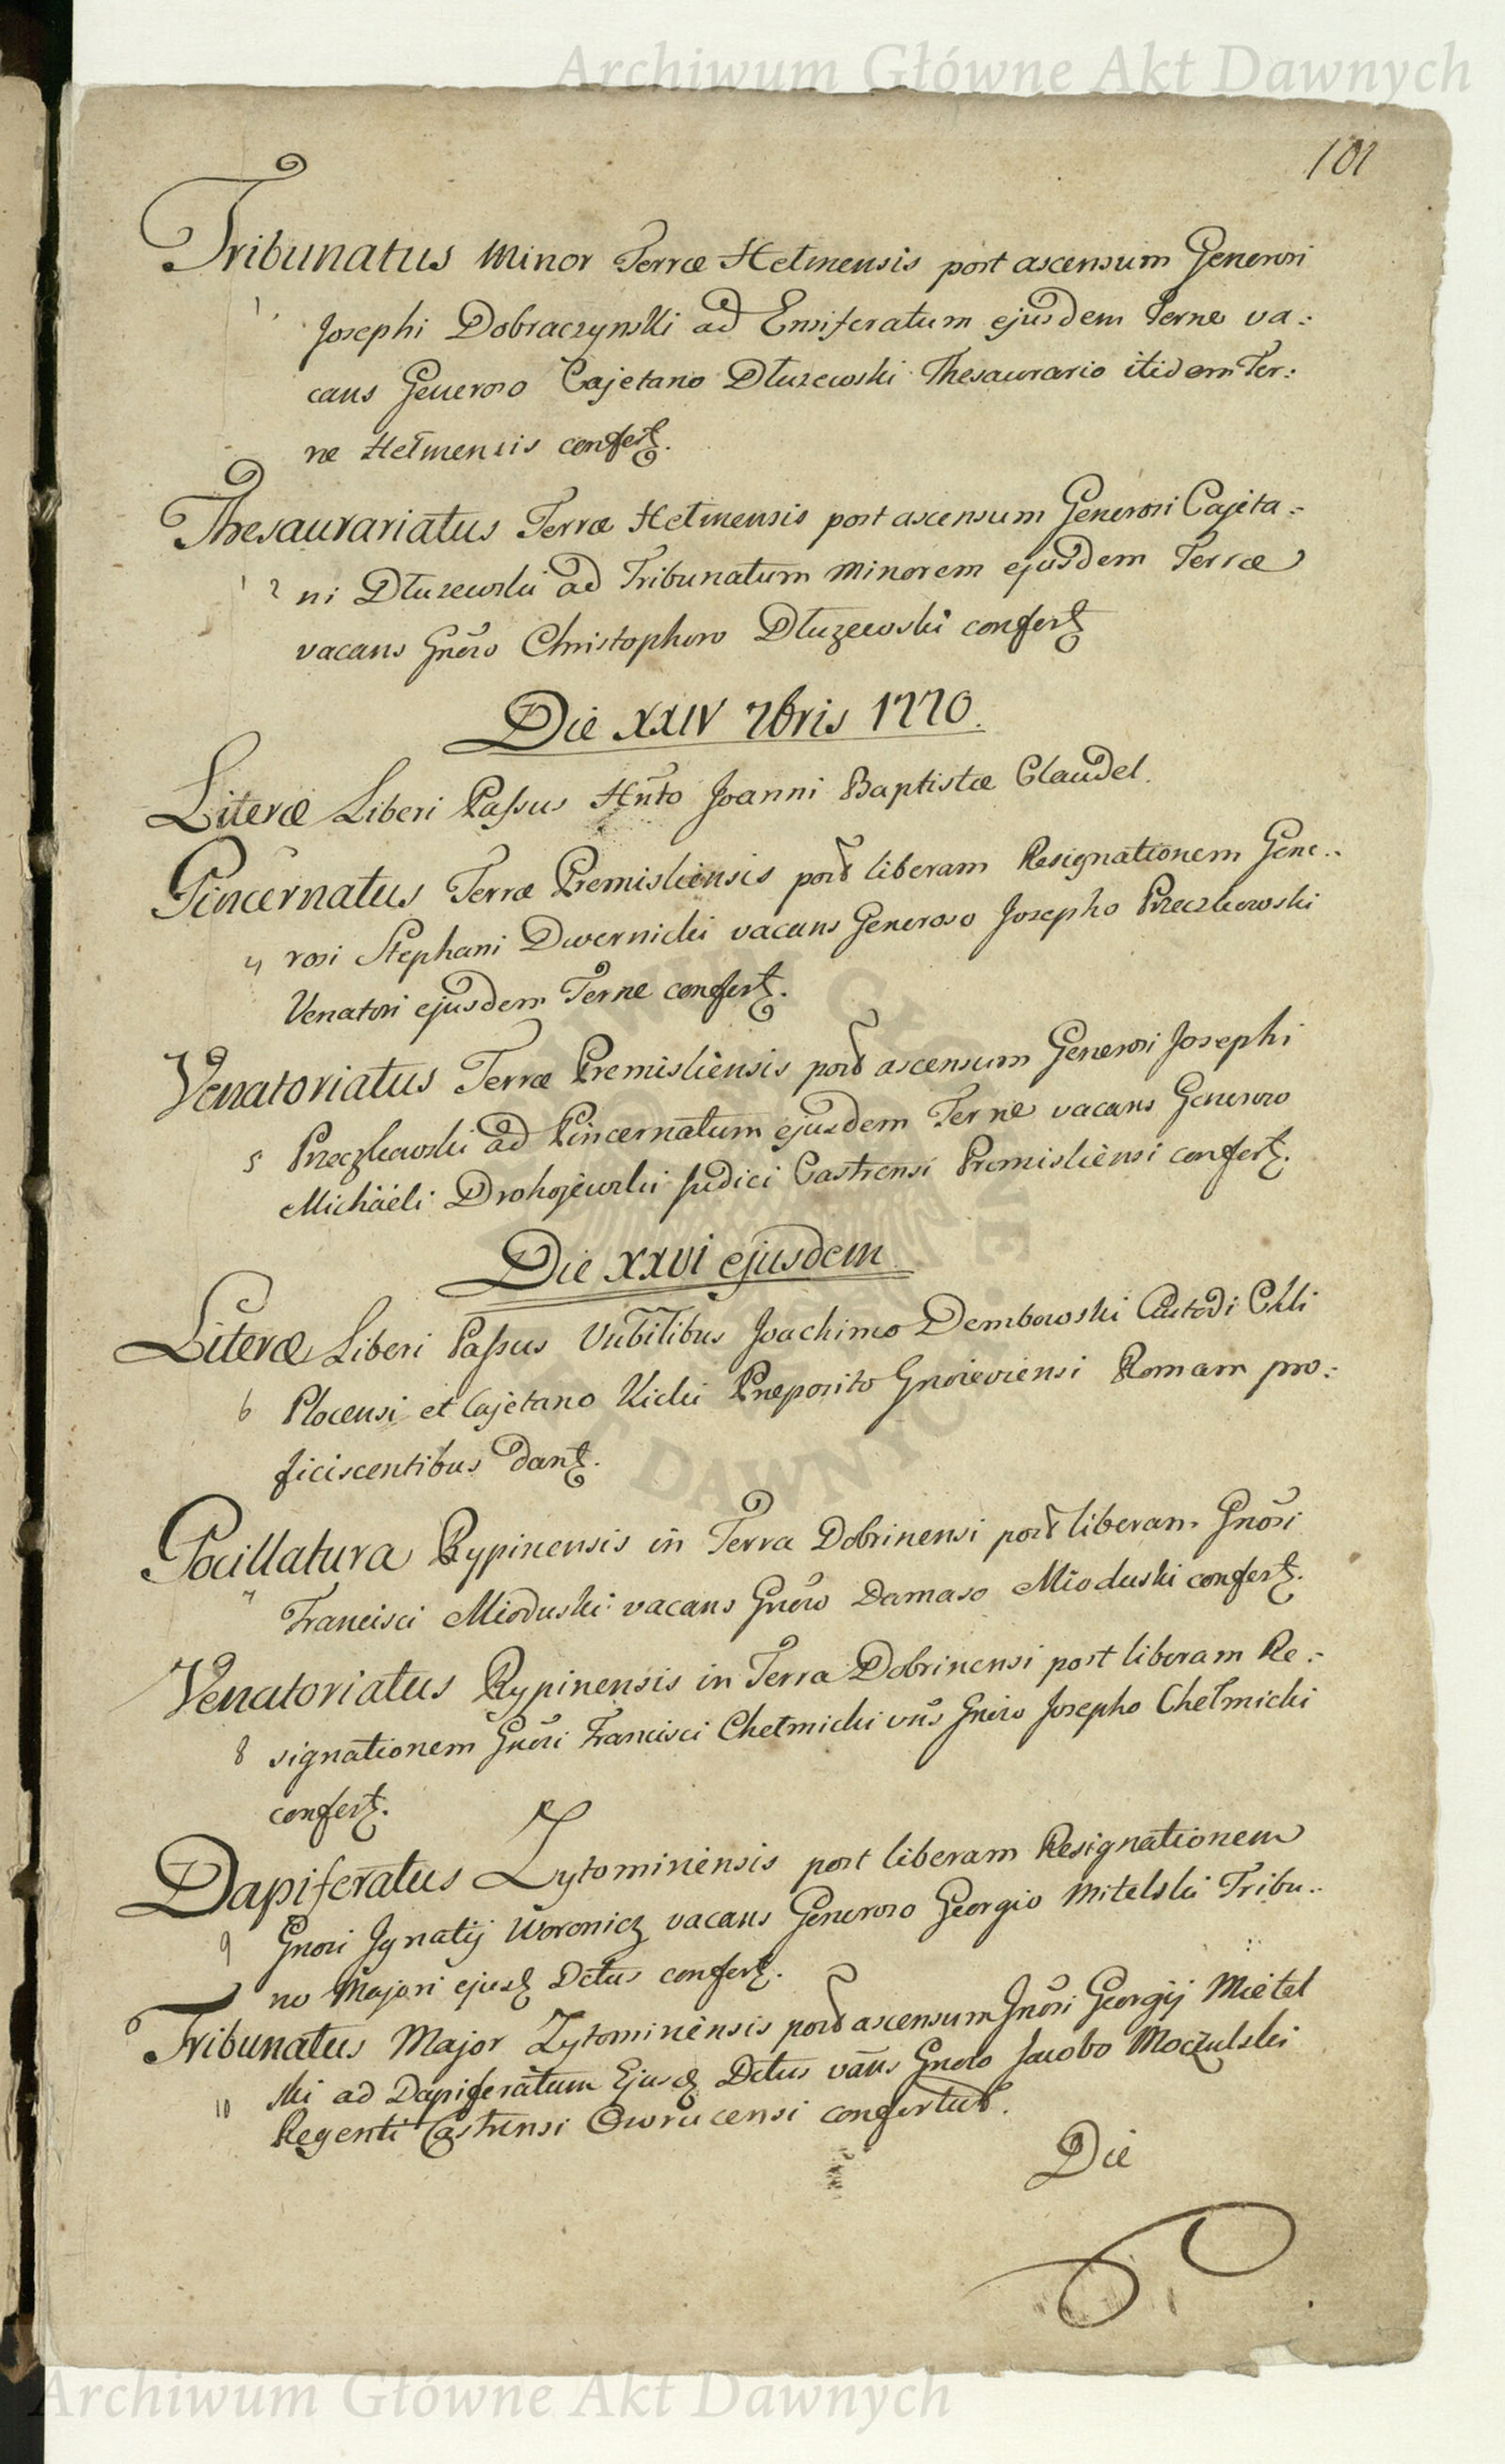 Archiwum Główne Akt Dawnych
101
Tribunatus Minor Terræ Hełmensis post ascensum Generosi
1 Josephi Dobraczynski ad Ensiferatum ejusdem Terræ va:
cans Generoso Cajetano Dłuzewski Thesaurario itidem Ter:
ræ Hełmensis confert.
Thesaurariatus Terræ Hełmensis post ascensum Generosi Cajeta:
2 ni Dłuzewski ad Tribunatum Minorem ejusdem Terræ
vacans Gnoso Christophoro Dłuzewski confert
Die XXIV 7bris 1770.
Literæ Liberi Passus Hnto Joanni Baptistæ Claudel.
Pincernatus Terræ Premisliensis post liberam Resignationem Gene:
4 rosi Stephani Dwernicki vacans Generoso Josepho Przeczkowski
Venatori ejusdem Terræ confert.
Venatoriatus Terræ Premisliensis post ascensum Generosi Josephi
5 Przeczkowski ad Pincernatum ejusdem Terræ vacans Generoso
Michäeli Drohojewski Judici Castrensi Premisliensi confert.
Die XXVI ejusdem
Literæ Liberi Passus Vnbilibus Joachimo Dembowski Custodi Chli
6 Plocensi et Cajetano Kicki Præposito Gnoieviensi Romam pro:
ficiscentibus dant.
Pocillatura Rypinensis in Terra Dobrinensi post liberam Gnosi
7 Francisci Mioduski vacans Gnoso Damaso Mioduski confert.
Venatoriatus Rypinensis in Terra Dobrinensi post liberam Re:
8 signationem Gnosi Francisci Chełmicki vns Gnoso Josepho Chełmicki
confert.
Dapiferatus Zytomiriensis post liberam Resignationem
9 Gnosi Ignatij Woronicz vacans Generoso Georgio Mitelski Tribu:
no Majori ejusd Dctus confert.
Tribunatus Major Zytomiriensis post ascensum Gnosi Georgij Mietel
10 ski ad Dapiferatum Ejusd Dctus vans Gnoso Jacobo Moczulski
Regenti Castrensi Owrucensi confertur.
Die
Archiwum Główne Akt Dawnych